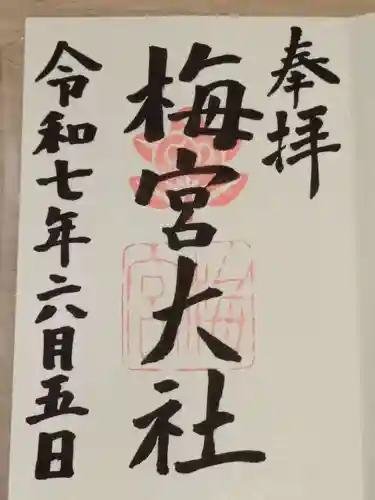 奉拝
梅宮大社
梅宮
令和七年二八月五日